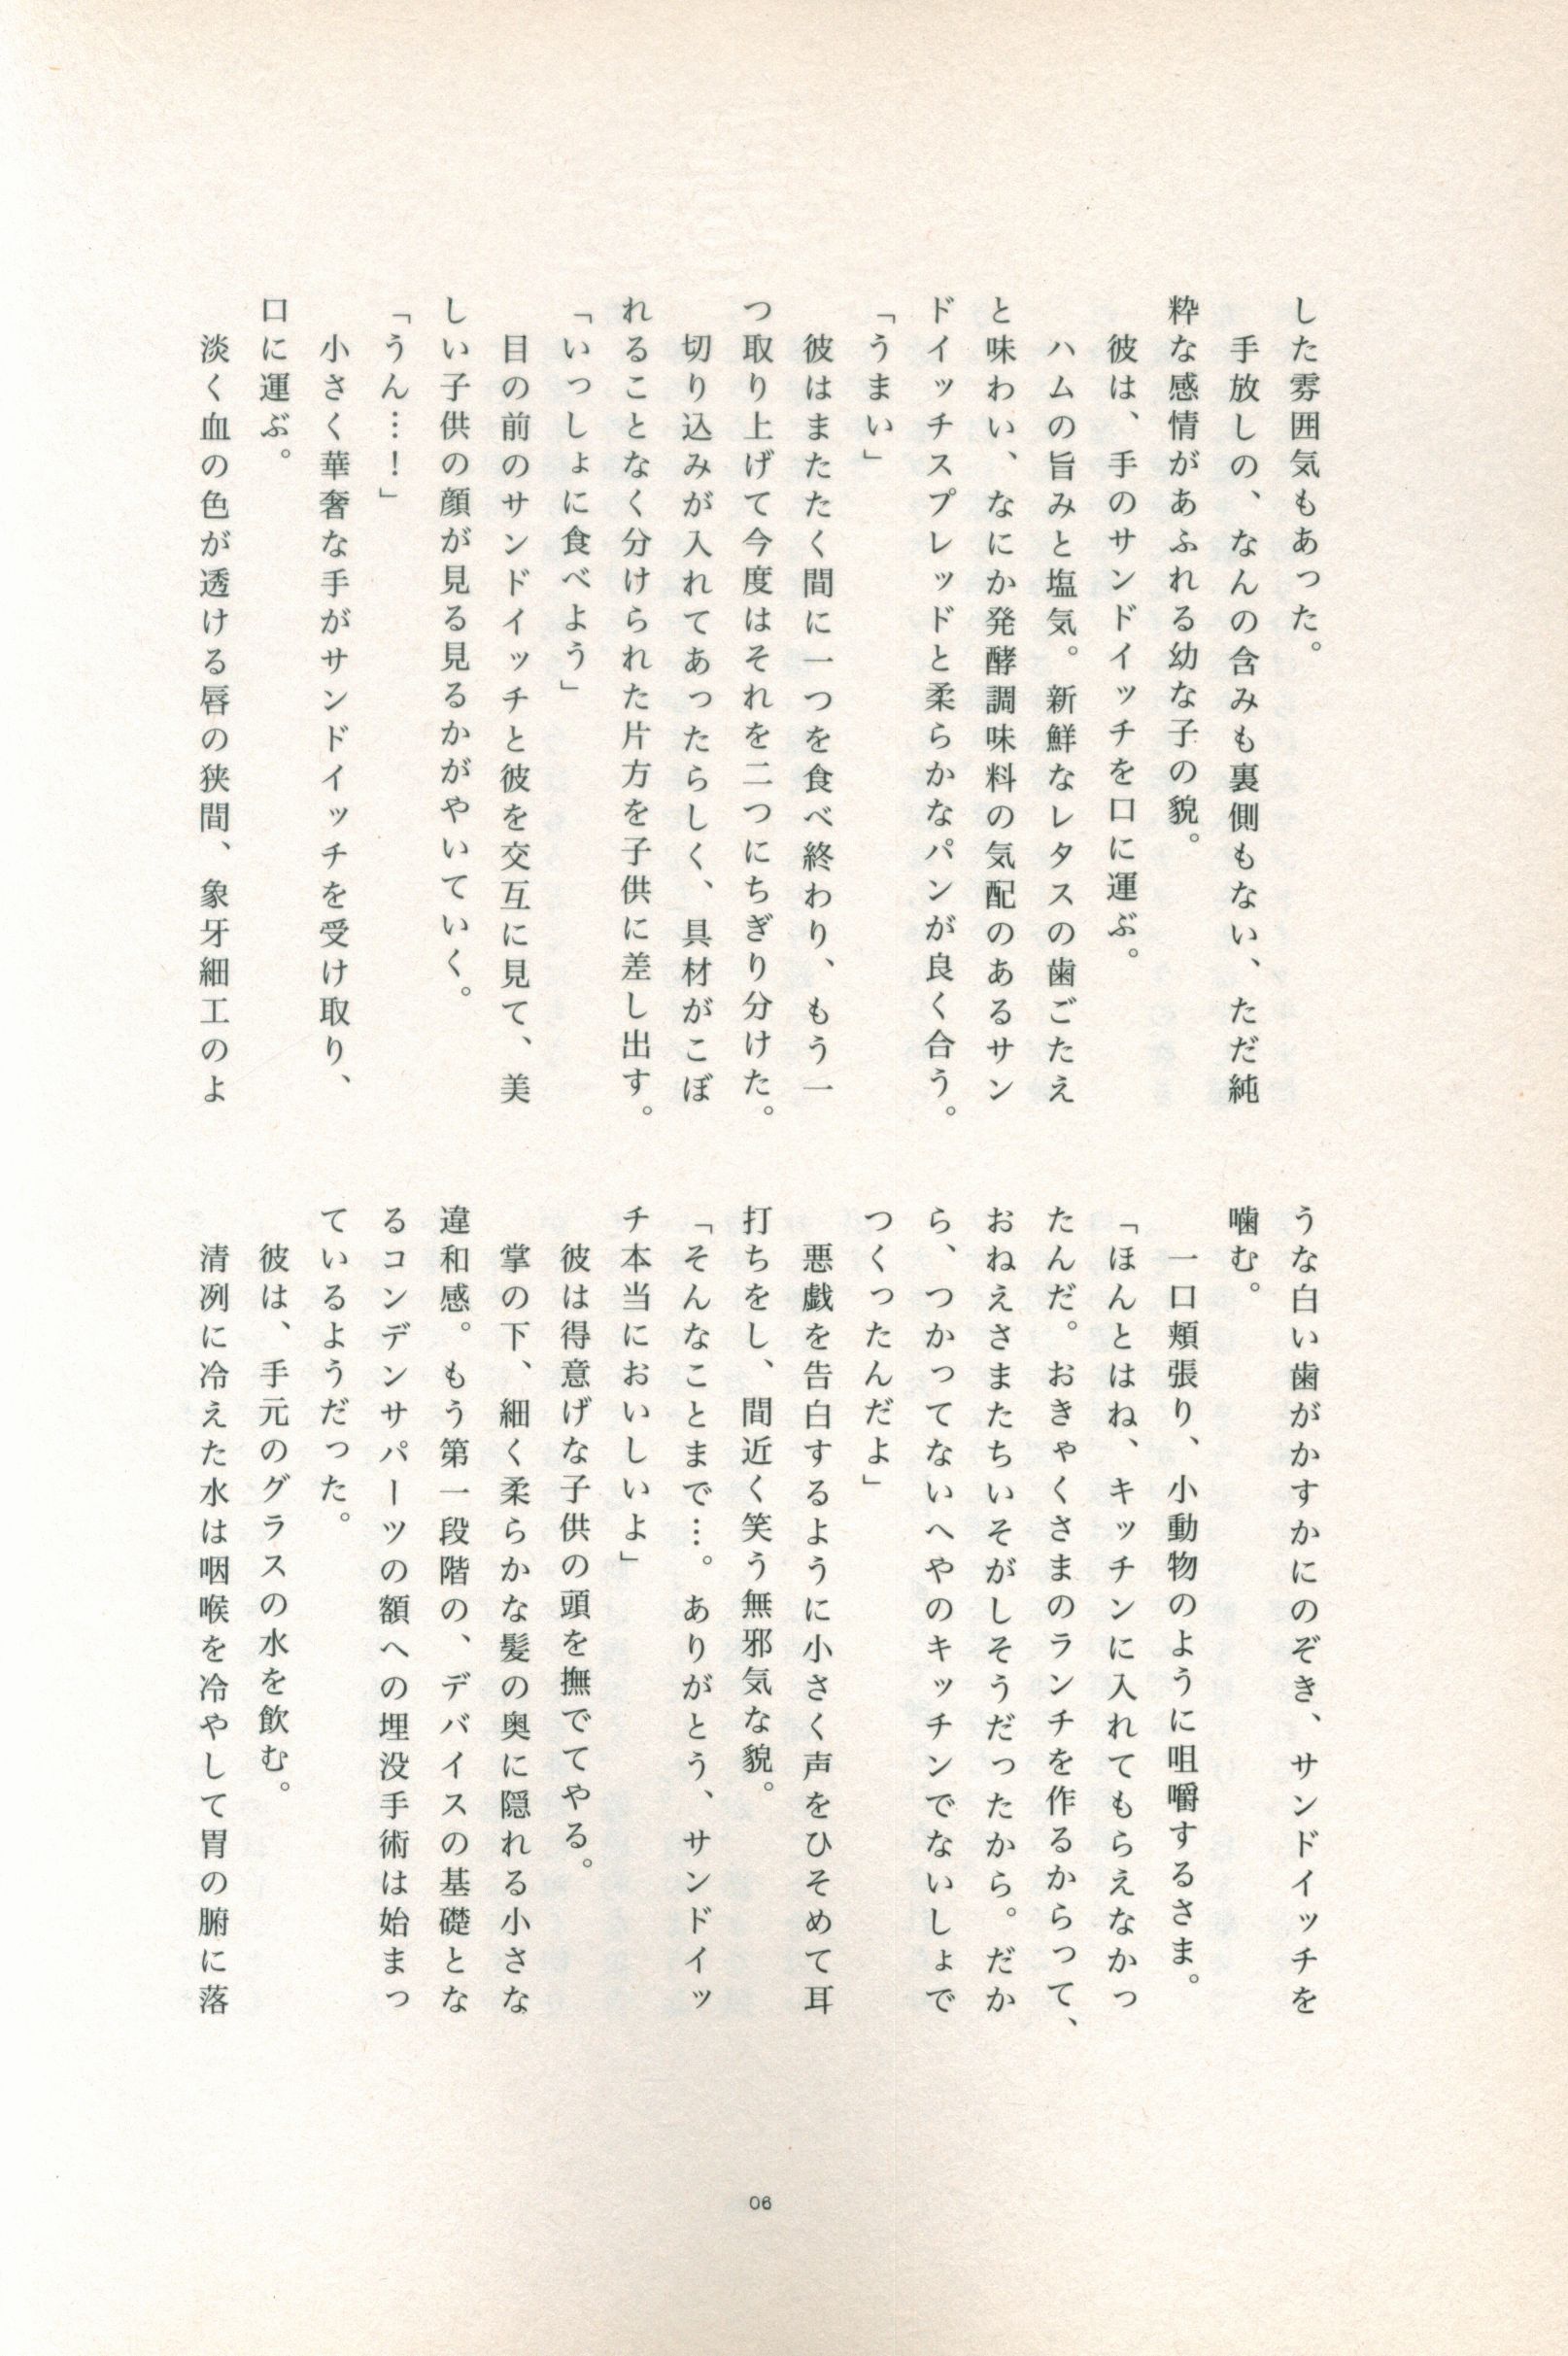 した雰囲気もあった。
　手放しの、なんの含みも裏側もない、ただ純
粋な感情があふれる幼な子の貌。
　彼は、手のサンドイッチを口に運ぶ。
　ハムの旨みと塩気。新鮮なレタスの歯ごたえ
と味わい、なにか発酵調味料の気配のあるサン
ドイッチスプレッドと柔らかなパンが良く合う。
「うまい」
　彼はまたたく間に一つを食べ終わり、もう一
つ取り上げて今度はそれを二つにちぎり分けた。
　切り込みが入れてあったらしく、具材がこぼ
れることなく分けられた片方を子供に差し出す。
「いっしょに食べよう」
　目の前のサンドイッチと彼を交互に見て、美
しい子供の顔が見る見るかがやいていく。
「うん…！」
　小さく華奢な手がサンドイッチを受け取り、
口に運ぶ。
　淡く血の色が透ける唇の狭間、象牙細工のよ
うな白い歯がかすかにのぞき、サンドイッチを
噛む。
　一口頬張り、小動物のように咀嚼するさま。
「ほんとはね、キッチンに入れてもらえなかっ
たんだ。おきゃくさまのランチを作るからって、
おねえさまたちいそがしそうだったから。だか
ら、つかってないへやのキッチンでないしょで
つくったんだよ」
　悪戯を告白するように小さく声をひそめて耳
打ちをし、間近く笑う無邪気な貌。
「そんなことまで…。ありがとう、サンドイッ
チ本当においしいよ」
　彼は得意げな子供の頭を撫でてやる。
　掌の下、細く柔らかな髪の奥に隠れる小さな
違和感。もう第一段階の、デバイスの基礎とな
るコンデンサパーツの額への埋没手術は始まっ
ているようだった。
　彼は、手元のグラスの水を飲む。
　清冽に冷えた水は咽喉を冷やして胃の腑に落
06